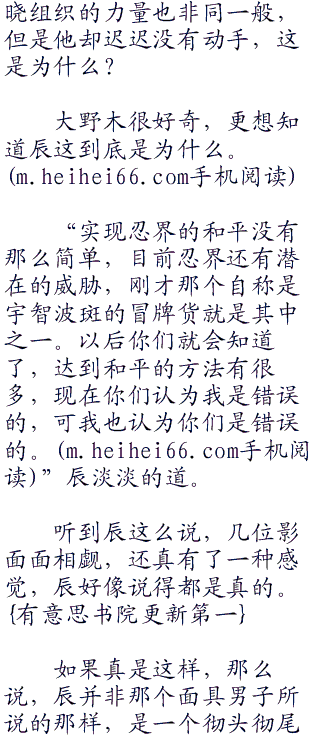 晓组织的力量也非同一般，
但是他却迟迟没有动手，这
是为什么？
大野木很好奇，更想知
道辰这到底是为什么。
(m.heihei66.com手机阅读)
“实现忍界的和平没有
那么简单，目前忍界还有潜
在的威胁，刚才那个自称是
宇智波斑的冒牌货就是其中
之一。以后你们就会知道
了，达到和平的方法有很
多，现在你们认为我是错误
的，可我也认为你们是错误
的。(m.heihei66.com手机阅
读)”辰淡淡的道。
听到辰这么说，几位影
面面相觑，还真有了一种感
觉，辰好像说得都是真的。
{有意思书院更新第一}
如果真是这样，那么
说，辰并非那个面具男子所
说的那样，是一个彻头彻尾